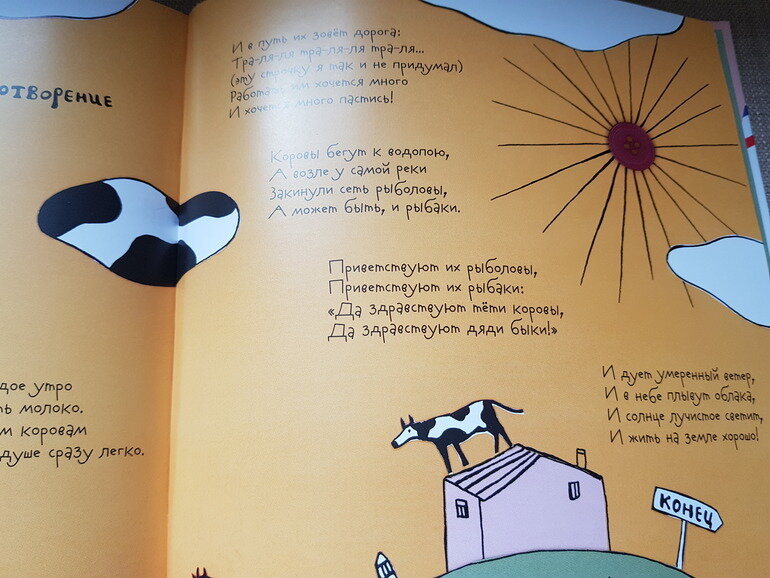 ОТВОРЕНИЕ
дое утро
ть молоко.
м коровам
душе сразу легко.
И в путь их зовёт дорога:
Тра-ля-ля тра-ля-ля тра-ля...
(эту строчку я так и не придумал)
Работать им хочется много
И хочется много пастись!
Коровы бегут к водопою,
А возле у самой реки
Закинули сеть рыболовы,
А может быть, и рыбаки.
Приветствуют их рыболовы,
Приветствуют их рыбаки:
«Да здравствуют тёти коровы,
Да здравствуют дяди быки!»
И дует умеренный ветер,
И в небе плывут облака,
И солнце лучистое светит,
И жить на земле хорошо!
КОНЕЦ